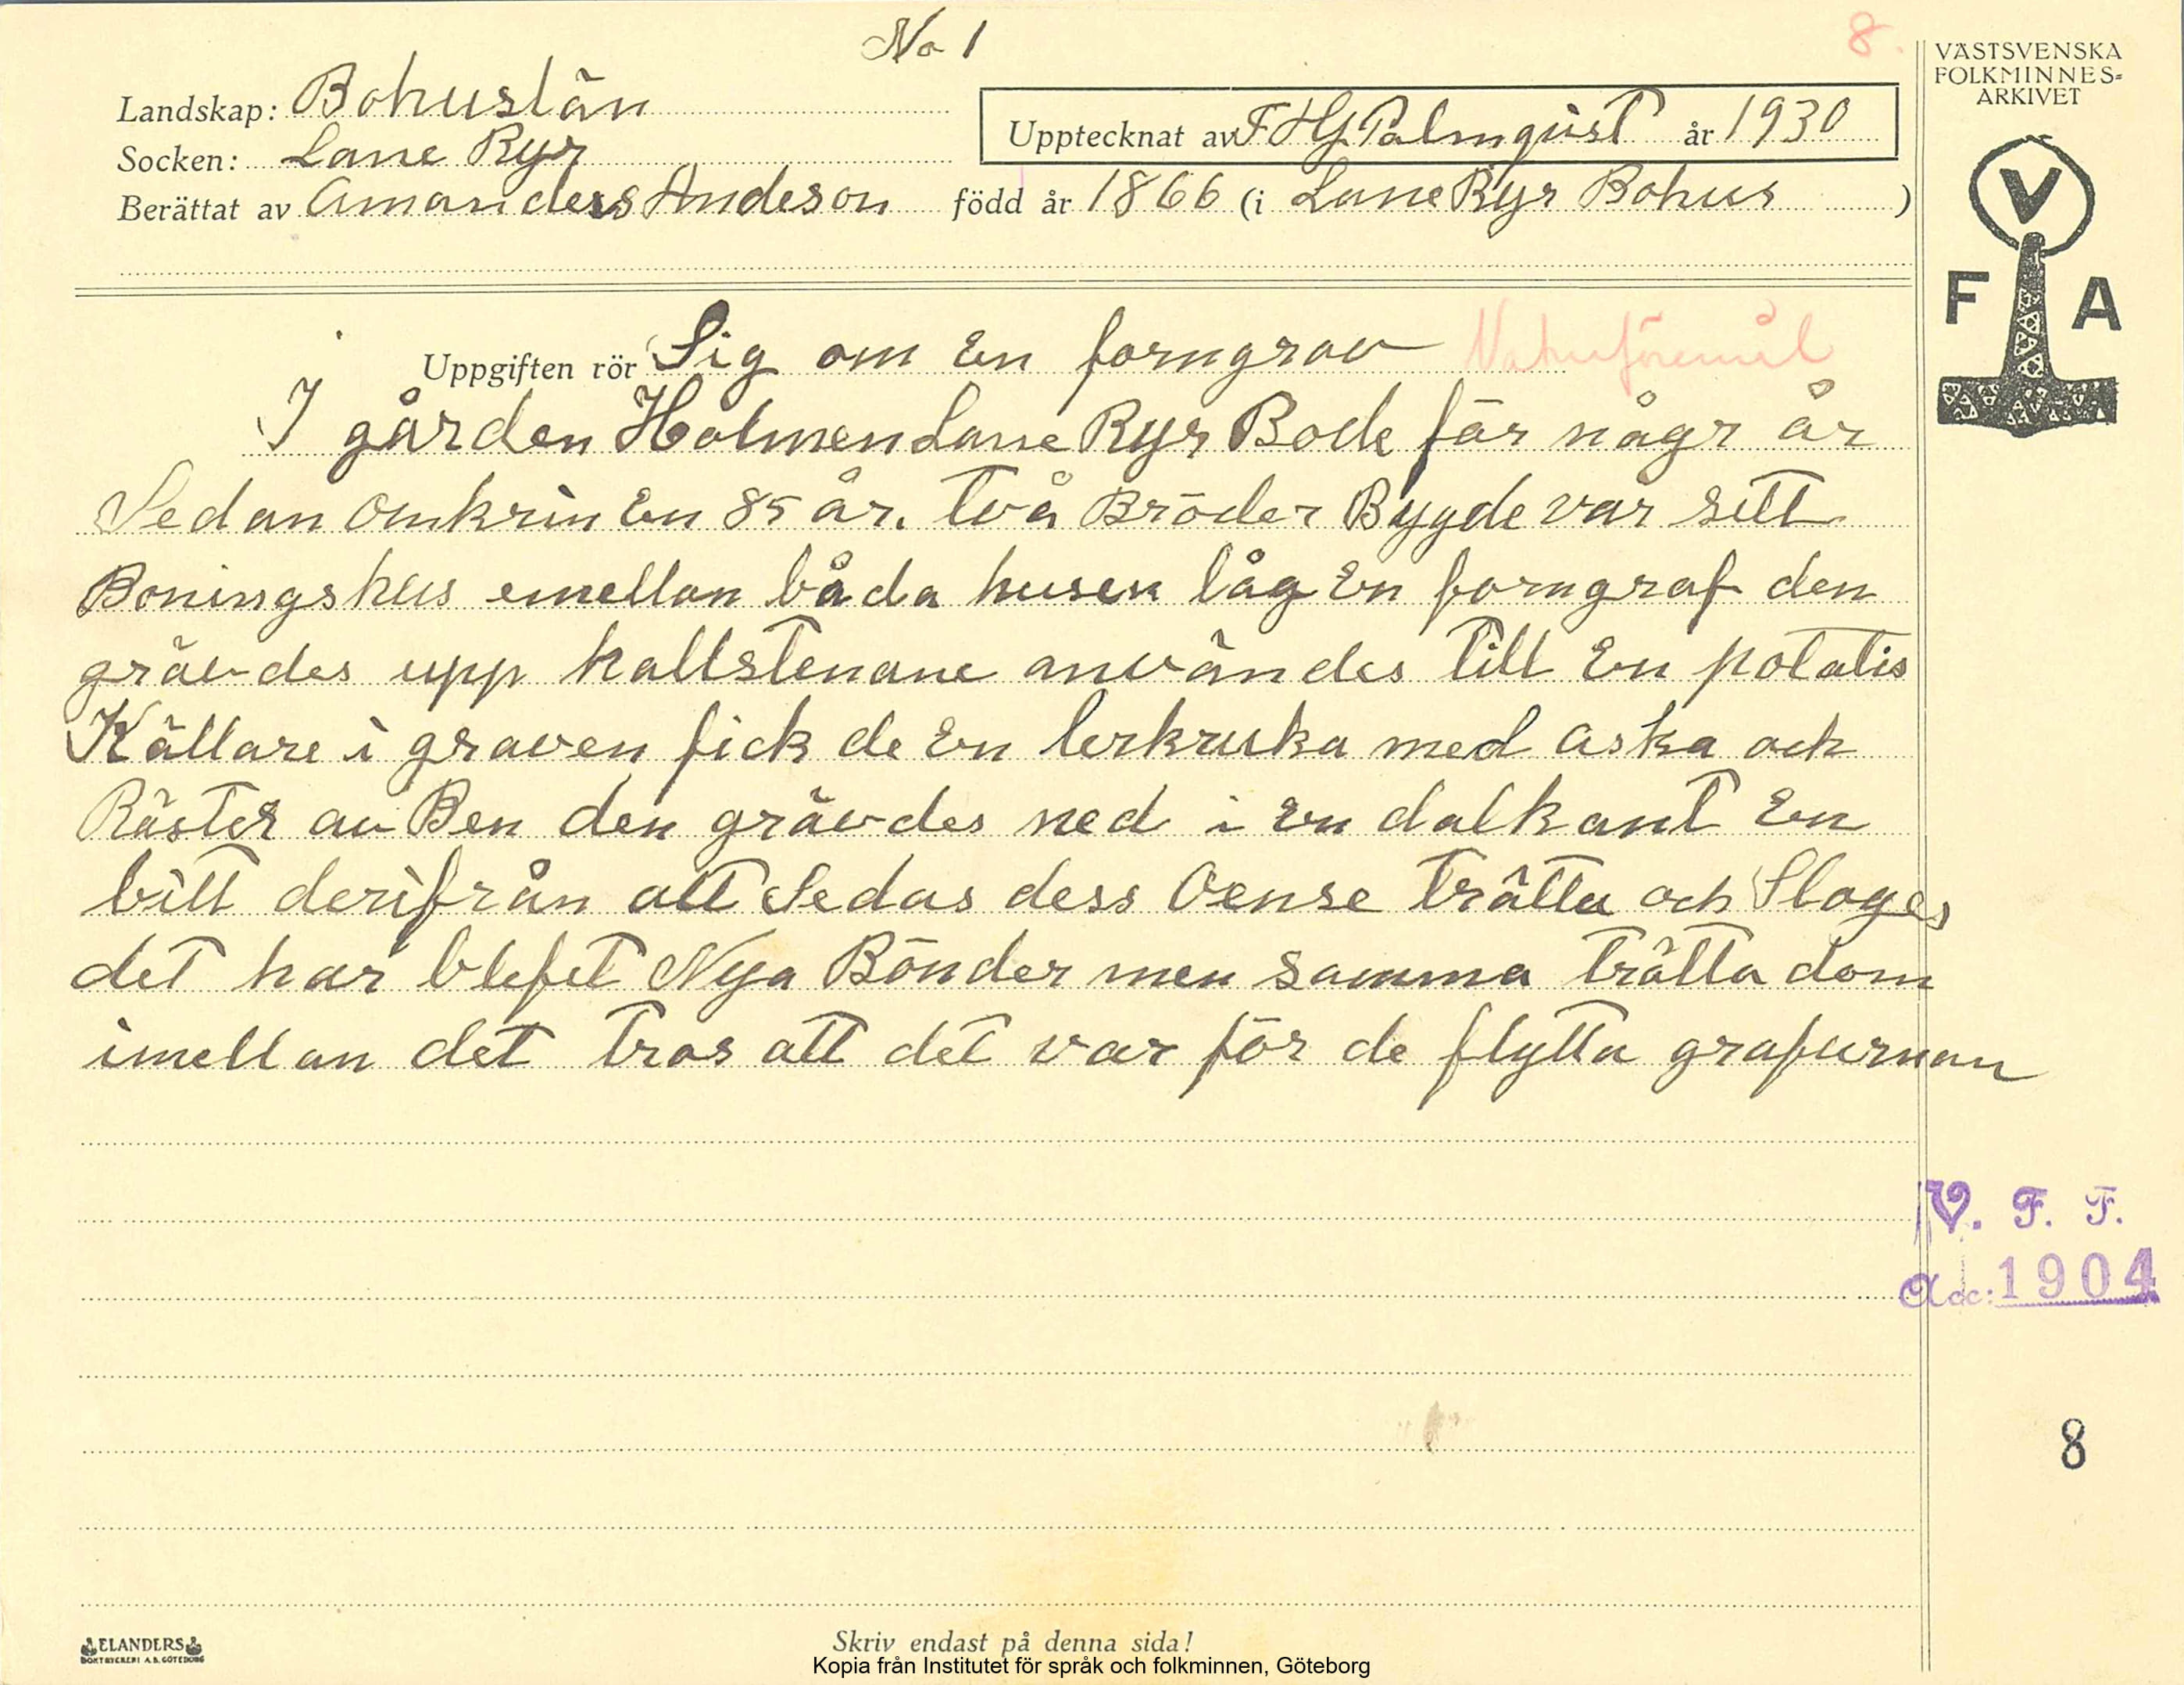 No 1
8.
VÄSTSVENSKA
FOLKMINNES=
ARKIVET
Landskap: Bohuslän
Upptecknat av F HG Palmquist år 1930
Socken: Lane Ryr
Berättat av Amanders Andeson född år 1866 (i Lane Ryr Bohus )
V
F A
Uppgiften rör Sig om En forngrav Naturföremål
I gården Holmen Lane Ryr Bode får någr år
Sedan omkrin En 85 år. två Bröder Bygde var sitt
Boningshus emellan båda husen låg En forngraf den
grävdes upp hallstenane användes till En potatis
Källare i graven fick de En lerkruka med aska och
Räster av Ben den grävdes ned i En dalkant En
bitt derifrån att Sedas dess Oense trätta och Sloges
det har blefet Nya Bönder men samma trätta dom
imellan det tros att det var för de flytta grafurnan
V. F. F.
Acc: 1904
8
ELANDERS
BOKTRYCKERI A.B. GÖTEBORG
Skriv endast på denna sida!
Kopia från Institutet för språk och folkminnen, Göteborg